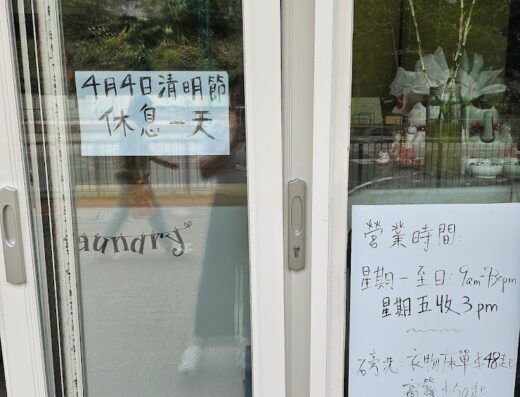 4月4日清明節
休息一天
aundry
營業時間:
星期一至日: 9am-7:30pm
星期五收3pm
磅洗: 衣物/床單 $48起
窗簾 $50起